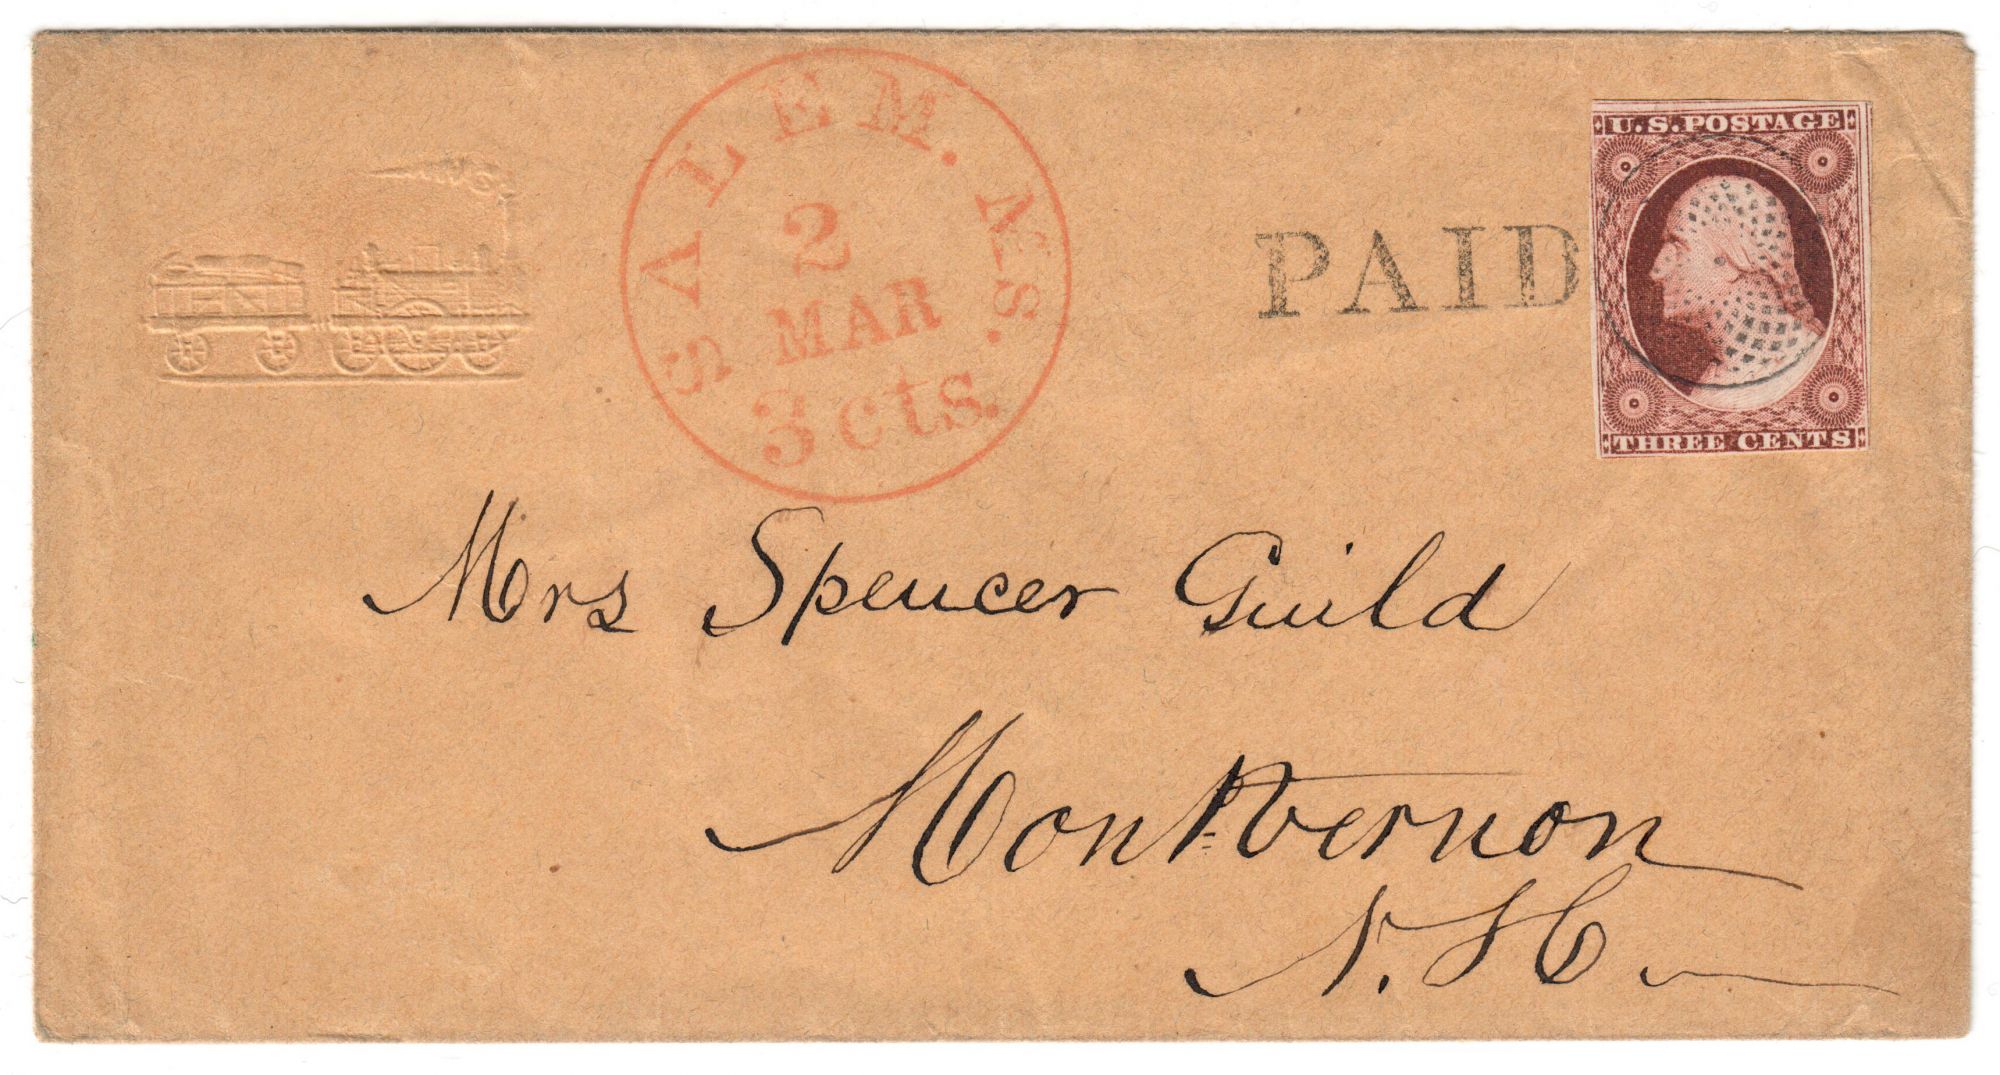 SALEM. MS.
2
MAR
3 cts.
PAID
U.S. POSTAGE
THREE CENTS
Mrs Spencer Guild
Mont Vernon
N. H.